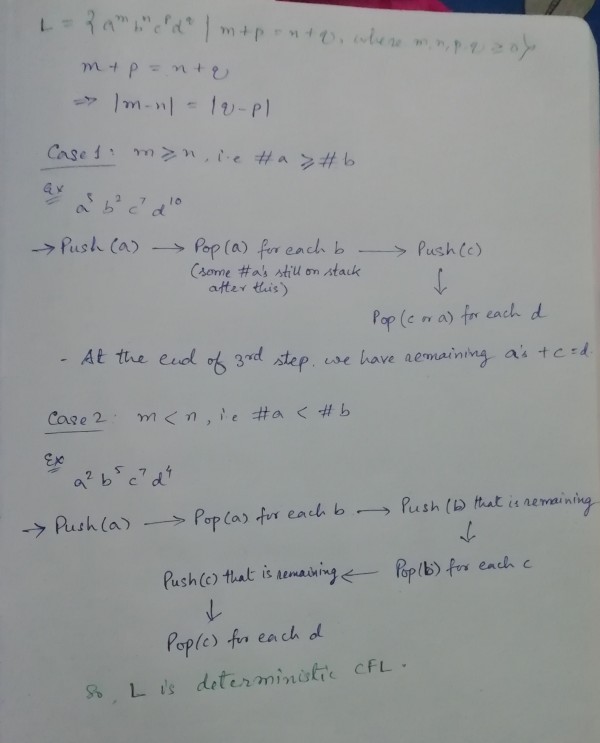 L = { aᵐ bⁿ cᵖ d𐞥 | m+p = n+q, where m,n,p,q ≥ 0}
m + p = n + q
⇒ |m-n| = |q-p|
Case 1: m ≥ n, i.e #a ≥ #b
Ex a⁵ b² c⁷ d¹⁰
→ Push(a) → Pop(a) for each b → Push(c)
(some #a's still on stack after this)
↓
Pop(c or a) for each d
- At the end of 3rd step, we have remaining a's + c = d.
Case 2: m < n, i.e #a < #b
Ex a² b⁵ c⁷ d⁴
→ Push(a) → Pop(a) for each b → Push(b) that is remaining
↓
Push(c) that is remaining ← Pop(b) for each c
↓
Pop(c) for each d
So, L is deterministic CFL.